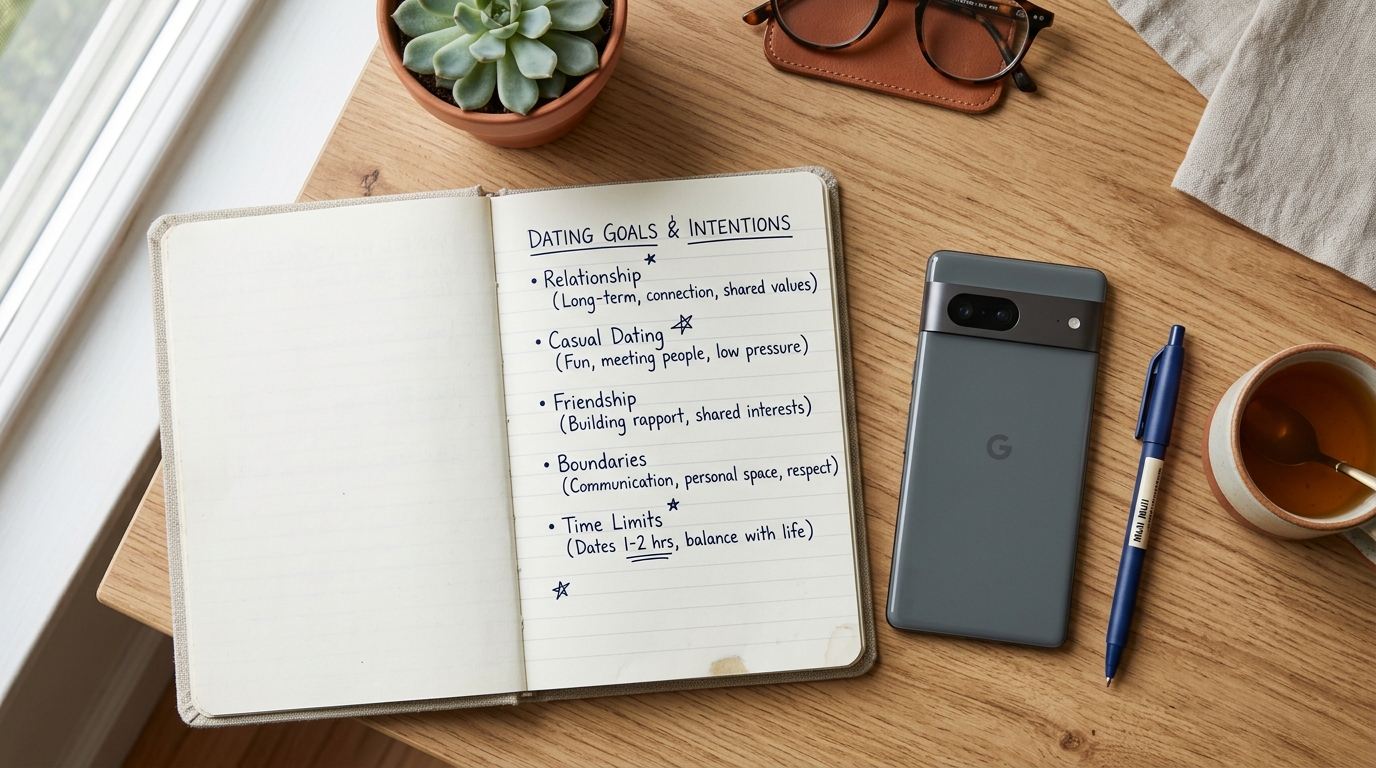 DATING GOALS & INTENTIONS
• Relationship
(Long-term, connection, shared values)
• Casual Dating
(Fun, meeting people, low pressure)
• Friendship
(Building rapport, shared interests)
• Boundaries
(Communication, personal space, respect)
• Time Limits
(Dates 1-2 hrs, balance with life)
G